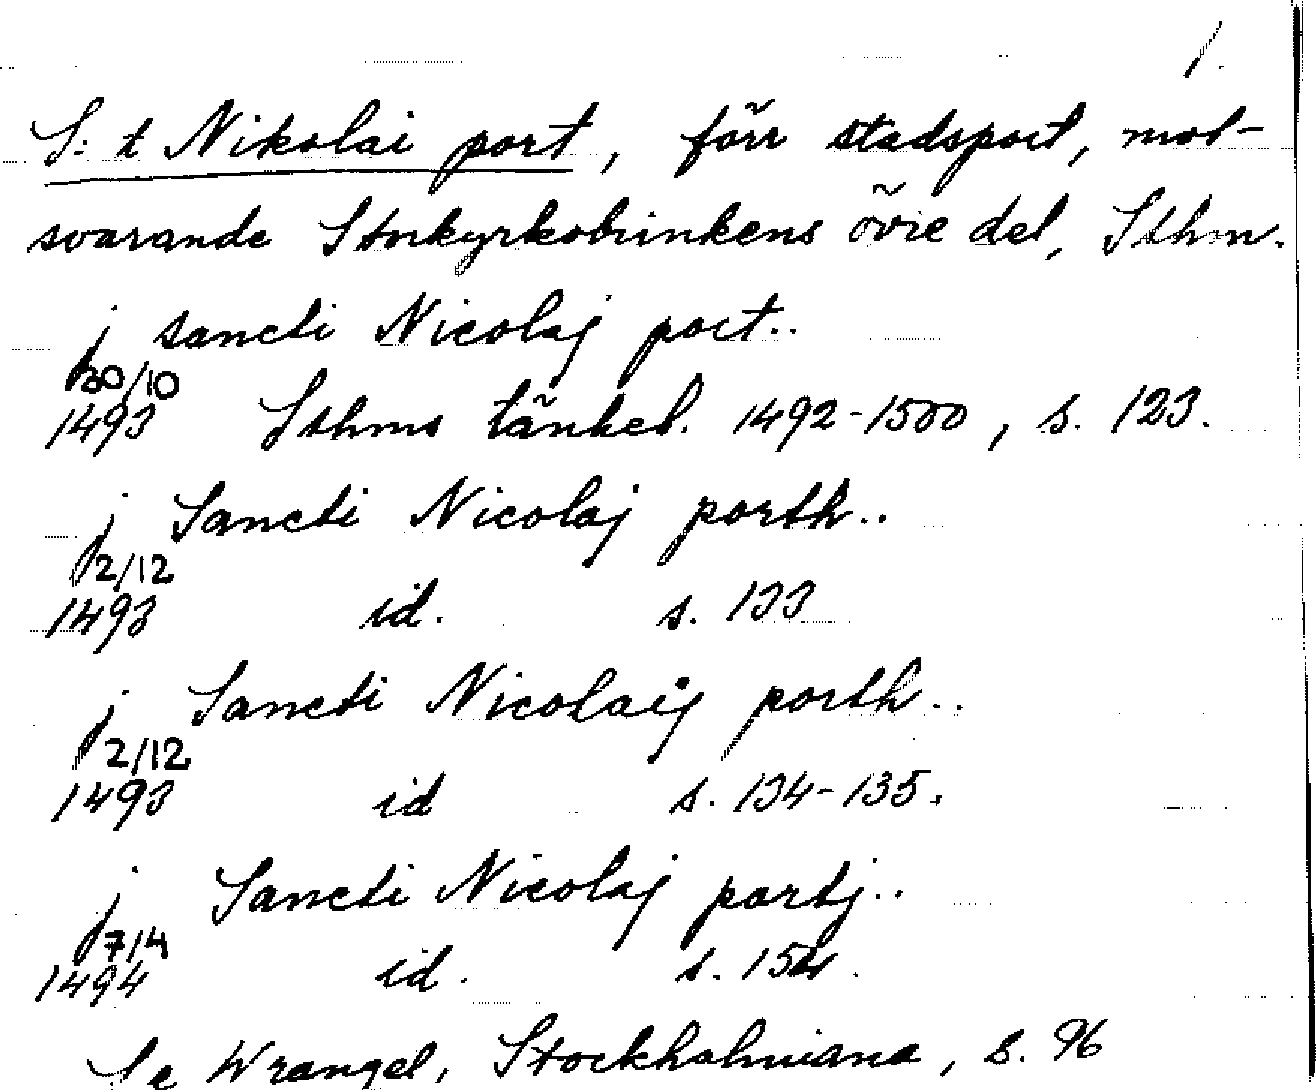 1.
S:t Nikolai port, förr stadsport, mot-
svarande Storkyrkobrinkens övre del, Sthm.
j sancti Nicolaj port..
30/10
1493 Sthms tänkeb. 1492-1500, s. 123.
j Sancti Nicolaj porth..
2/12
1493 id. s. 133
j Sancti Nicolaij porth..
2/12
1493 id s. 134-135.
j Sancti Nicolaj portj..
7/4
1494 id. s. 154.
Se Wrangel, Stockholmiana, s. 96